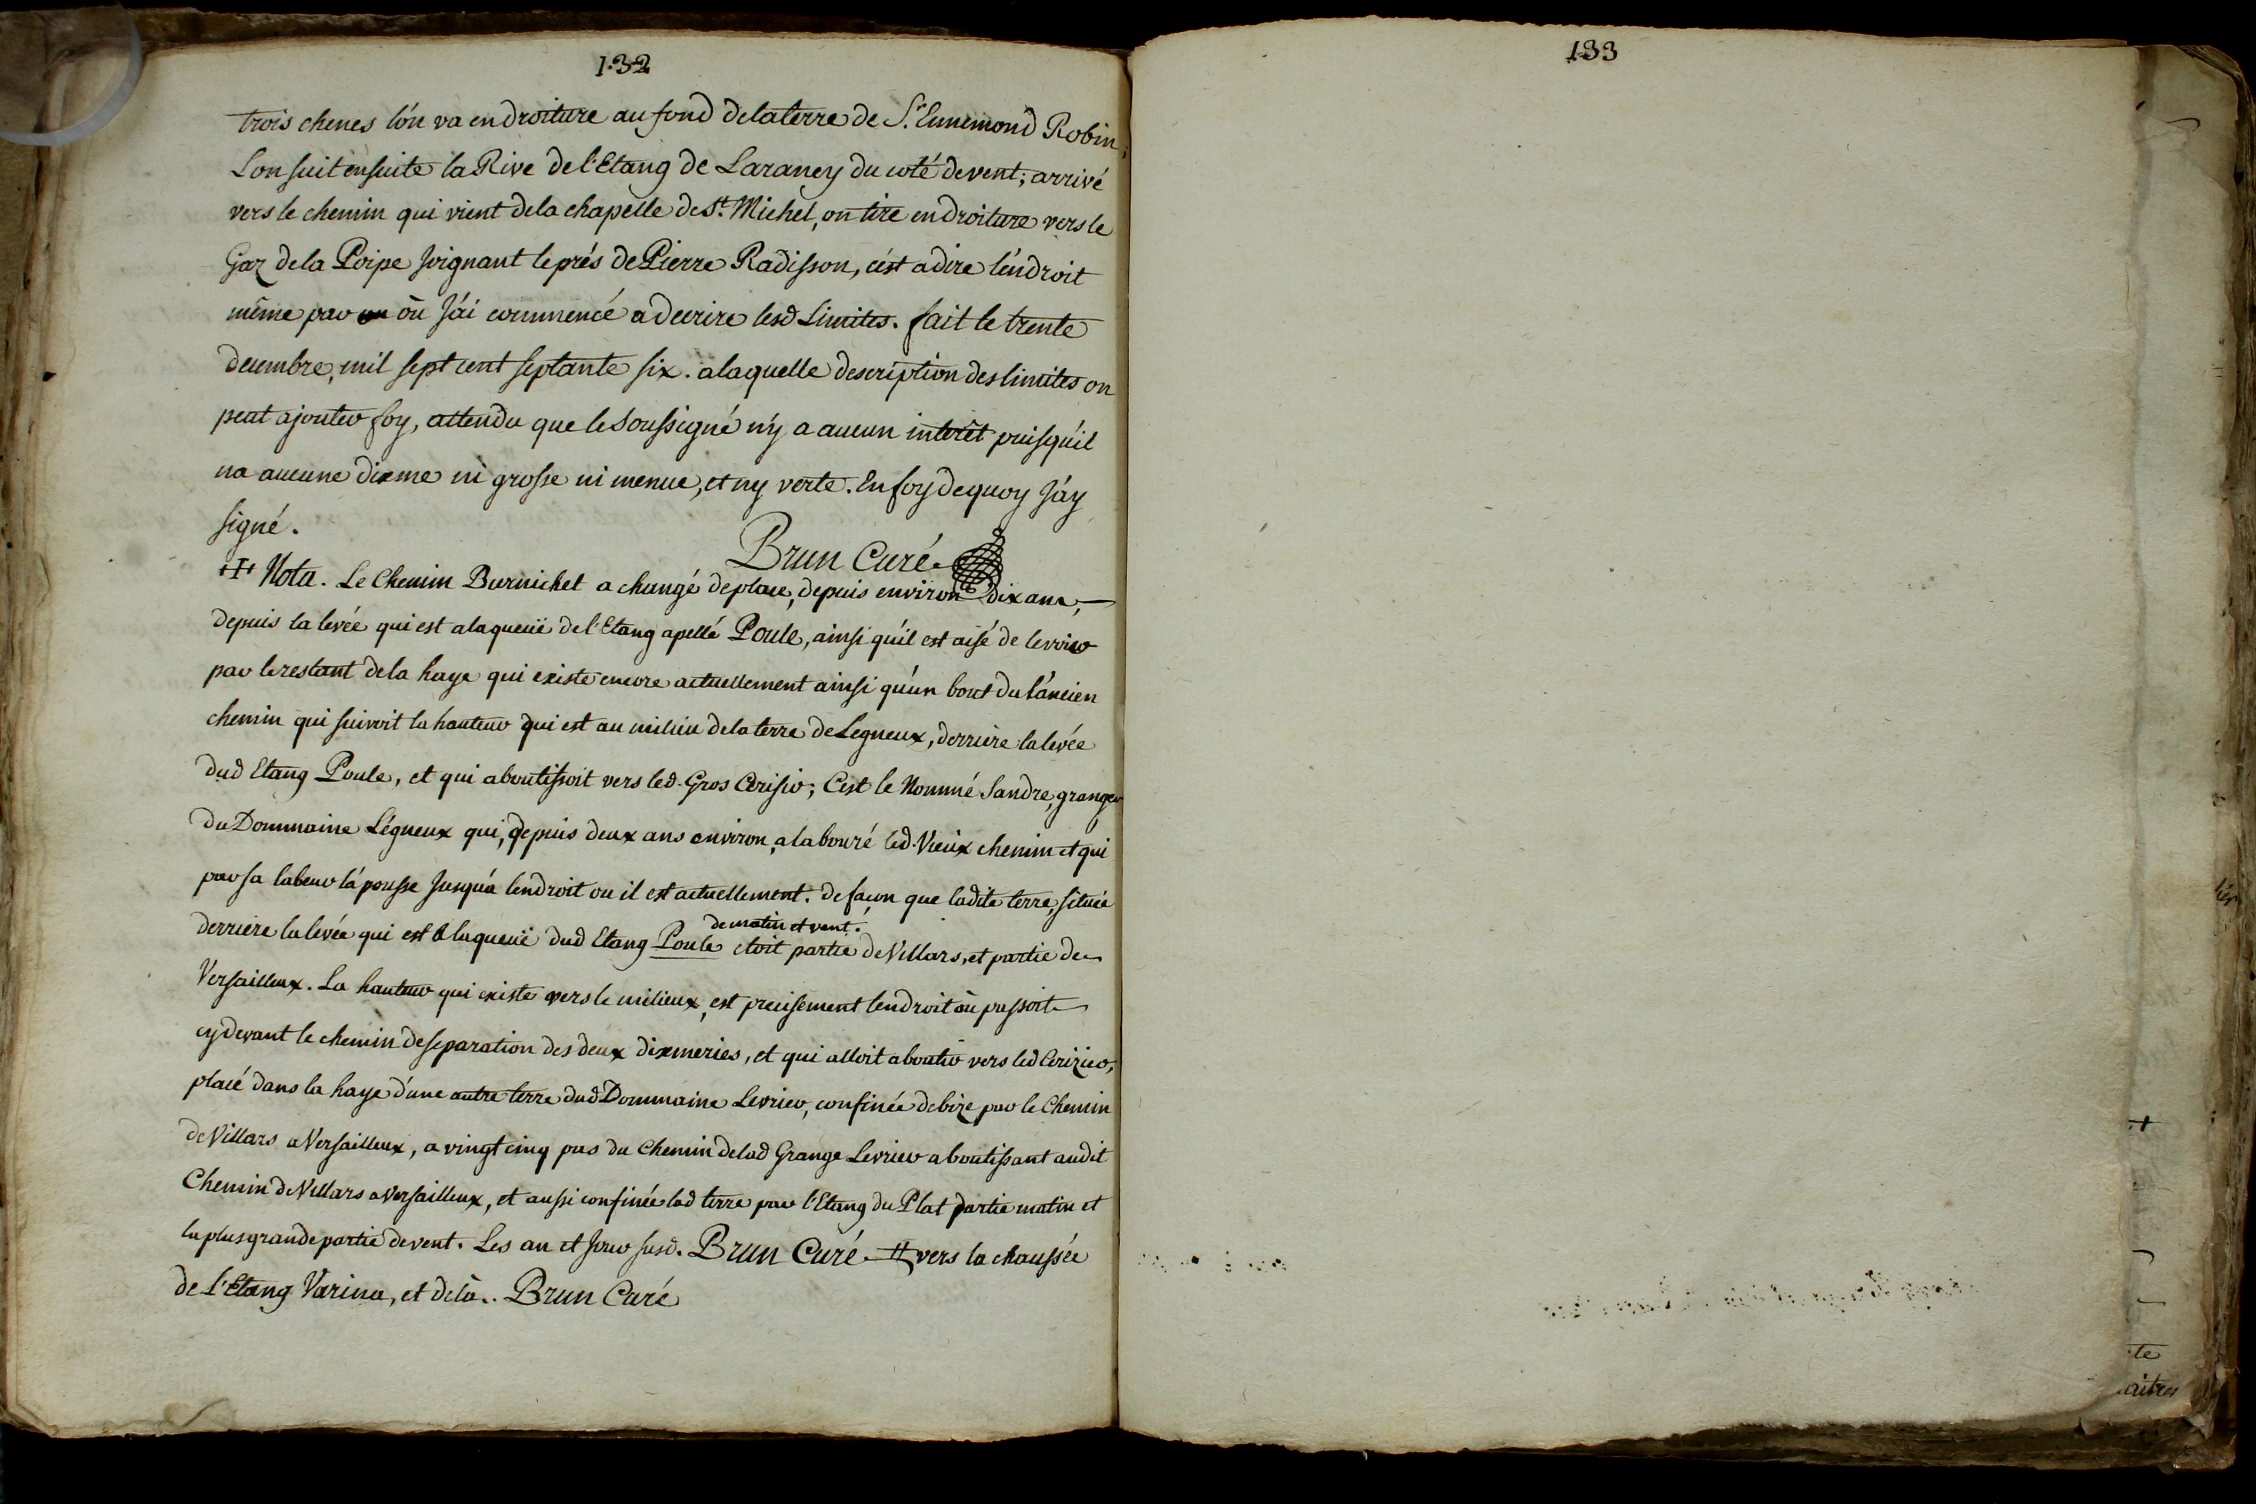 132
trois chenes l'on va en droiture au fond de la terre de Sr. Ennemond Robin;
L'on suit ensuite la Rive de l'Etang de Laraney du coté de vent; arrivé
vers le chemin qui vient de la chapelle de St. Michel, on tire en droiture vers le
Gaz de la Poipe joignant le prés de Pierre Radisson, c'ést a dire l'éndroit
même par où J'ái commencé a decrire lesd Limites. fait le trente
decembre, mil sept cent septante six. a laquelle description des limites on
peut ajouter foy, attendu que le soussigné n'y a aucun interêt puisqu'il
na aucune dixme ni grosse ni menue, et ny verte. En foy de quoy J'áy
signé.
Brun Curé.
Nota. Le Chemin Burnichet a changé de place, depuis environ dix ans,
depuis la levée qui est a la queuë de l'Etang apellé Poule, ainsi qu'il est aisé de le voir
par le restant de la haye qui existe encore actuellement ainsi qu'un bout du l'áncien
chemin qui suivoit la hauteur qui est au milieu de la terre de Legneux, derriere la levée
dud Etang Poule, et qui aboutissoit vers led. Gros Cerisier; C'est le Nommé Sandre, granger
du Dommaine Légneux qui, depuis deux ans environ, a labouré led. Vieux chemin et qui
par sa labeur l'á pousse Jusqu'á lendroit ou il est actuellement. de façon que ladite terre, située
derriere la levée qui est a la queuë dud Etang Poule de matin et vent. etoit partie de Villars, et partie de
Versailleux. La hauteur qui existe vers le milieux, est precisement lendroit où passoit
cy devant le chemin de separation des deux dixmeries, et qui alloit aboutir vers led Cerizier,
placé dans la haye d'une autre terre dud Dommaine Levrier, confinée de bize par le Chemin
de Villars a Versailleux, a vingt cinq pas du Chemin de lad Grange Levrier aboutissant audit
Chemin de Villars a Versailleux, et aussi confinée lad terre par l'Etang du Plat partie matin et
la plus grande partie de vent. Les an et Jour susd. Brun Curé. # vers la chaussée
de l'Etang Varina, et delà.. Brun Curé
133
te
aitres